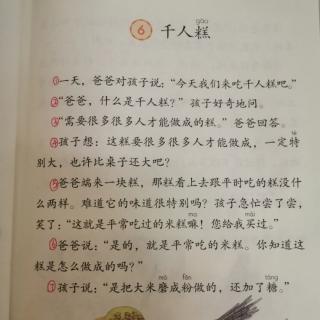 gāo
6 千人糕
①一天，爸爸对孩子说：“今天我们来吃千人糕吧。”
②“爸爸，什么是千人糕？”孩子好奇地问。
③“需要很多很多人才能做成的糕。”爸爸回答。
tè
④孩子想：这糕要很多很多人才能做成，一定特
别大，也许比桌子还大吧？
⑤爸爸端来一块糕，那糕看上去跟平时吃的糕没什
么两样。难道它的味道很特别吗？孩子急忙尝了尝，
ma mǎi
笑了：“这就是平常吃过的米糕嘛！您给我买过。”
⑥爸爸说：“是的，就是平常吃的米糕。你知道这
糕是怎么做成的吗？”
mò fěn táng
⑦孩子说：“是把大米磨成粉做的，还加了糖。”